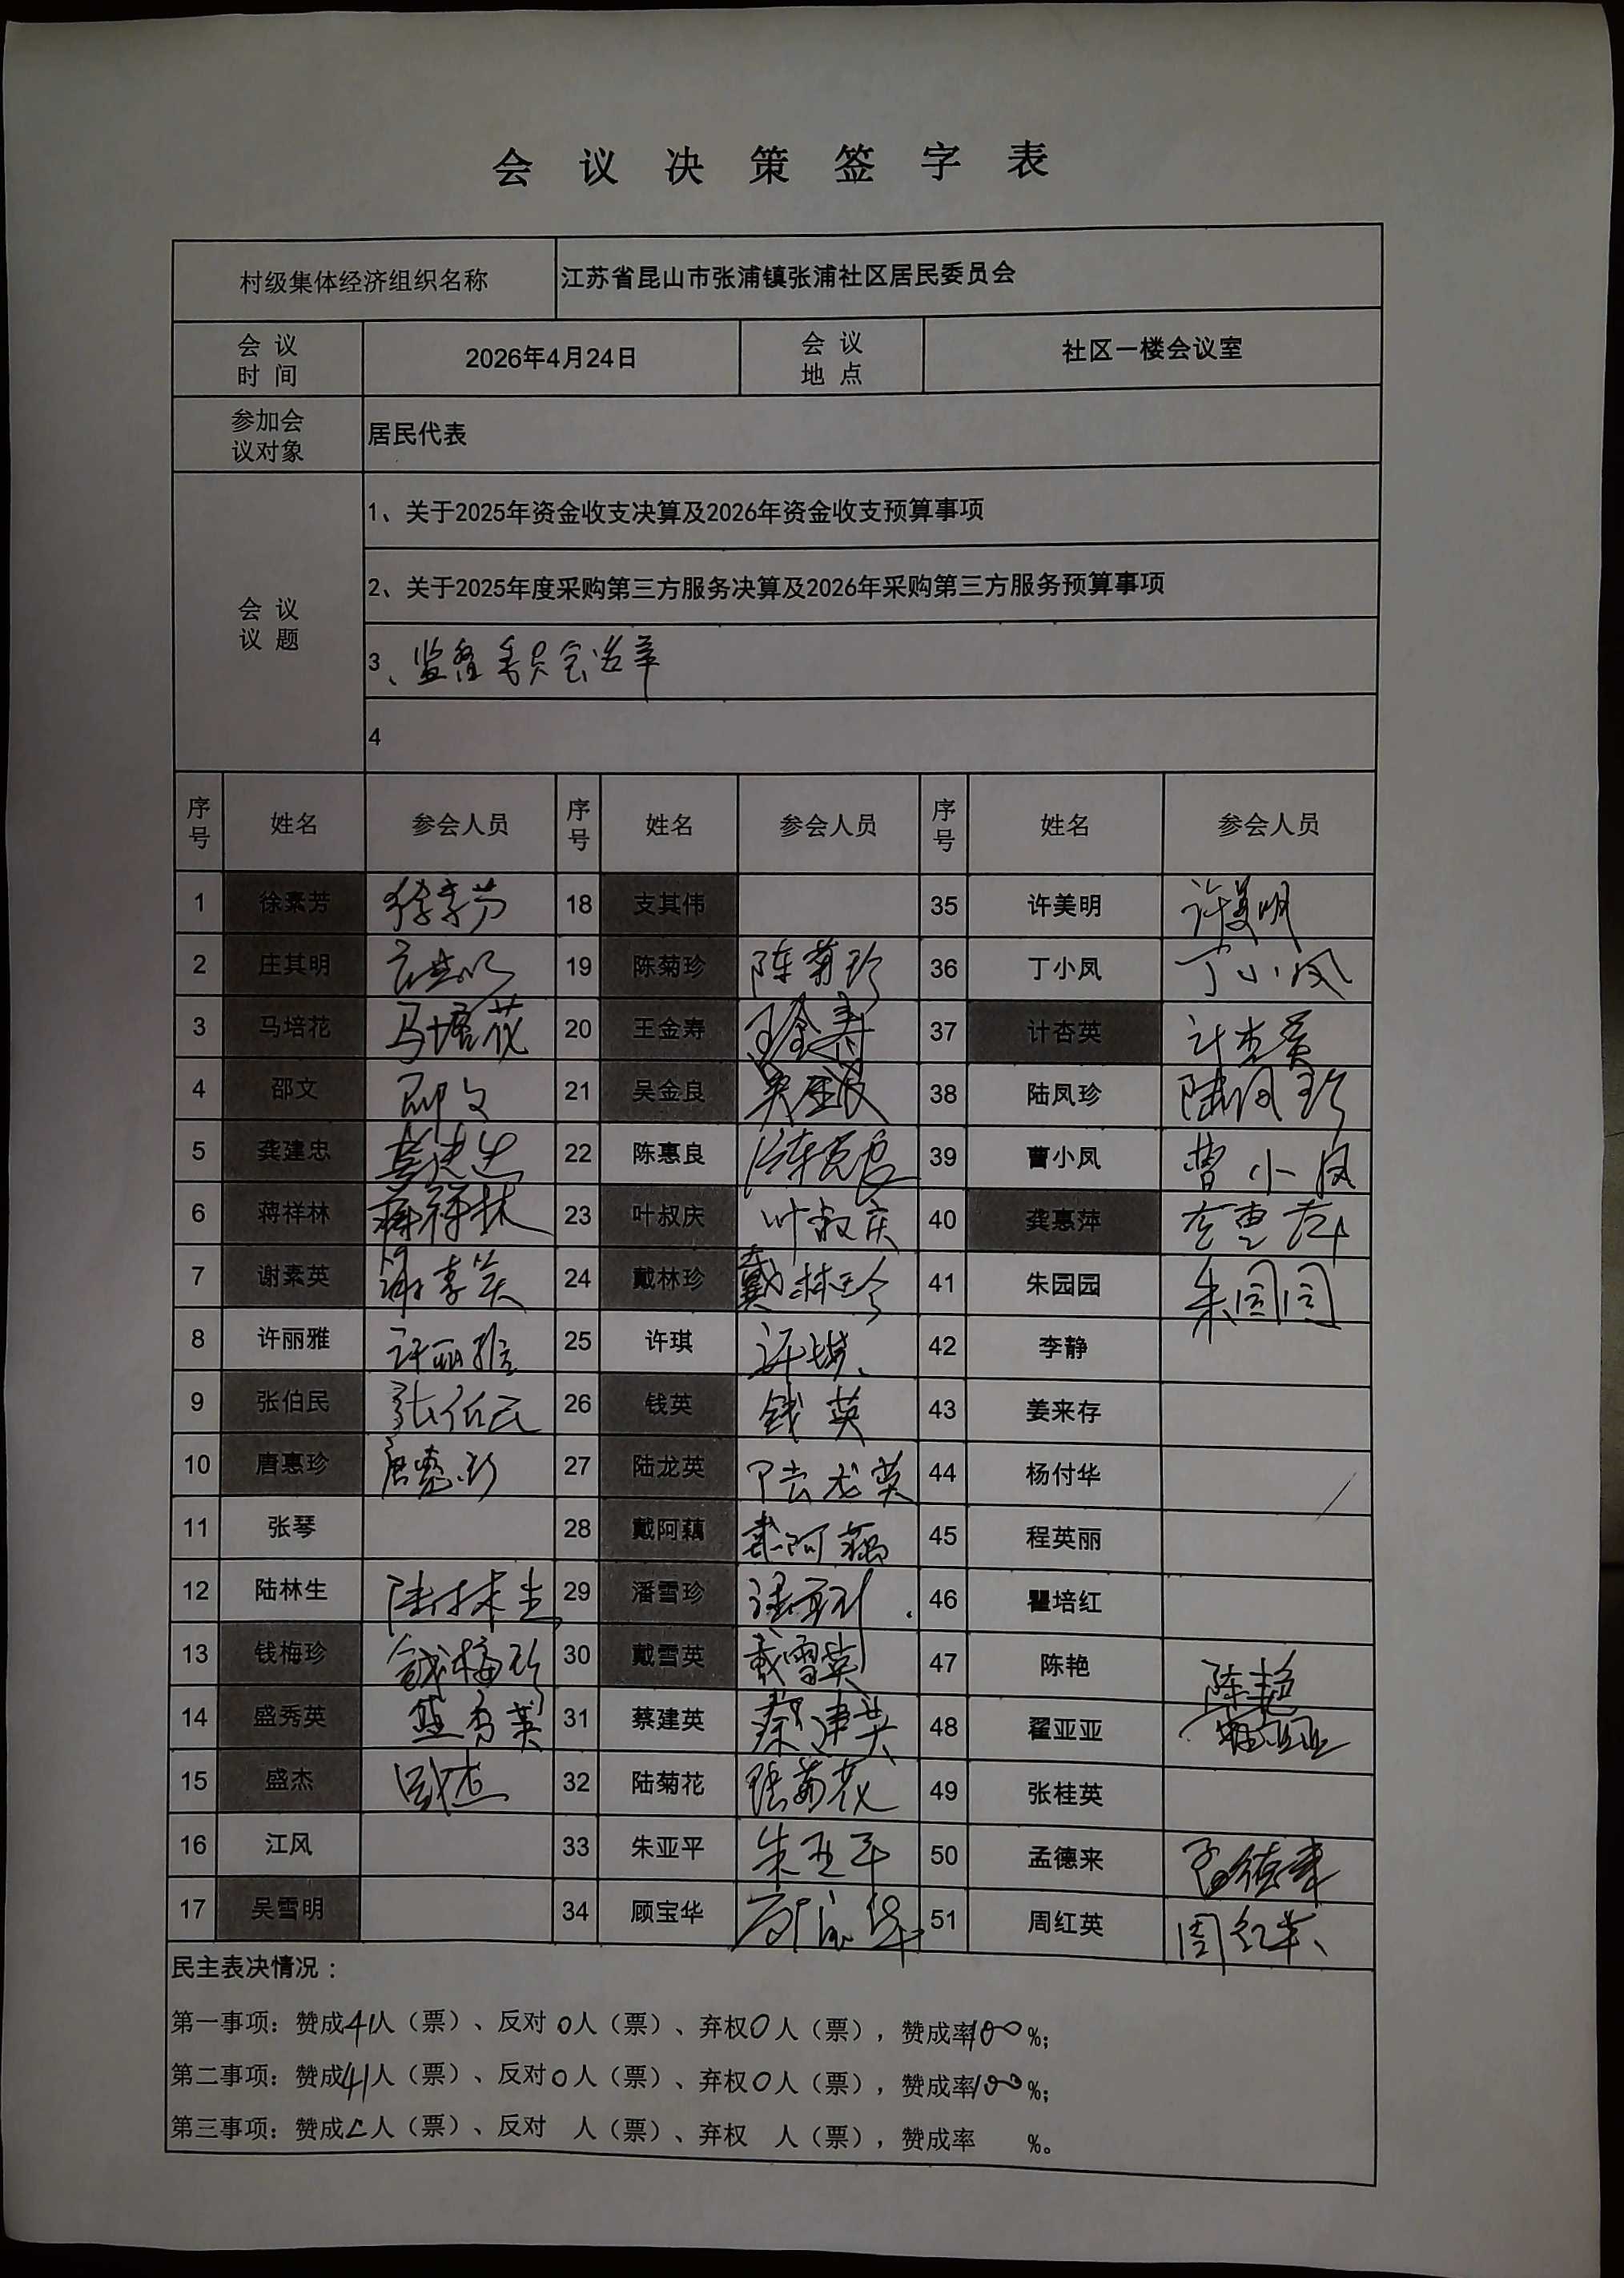 会议决策签字表
村级集体经济组织名称 江苏省昆山市张浦镇张浦社区居民委员会
会议时间 2026年4月24日 会议地点 社区一楼会议室
参加会议对象 居民代表
会议议题
1、关于2025年资金收支决算及2026年资金收支预算事项
2、关于2025年度采购第三方服务决算及2026年采购第三方服务预算事项
3、监督委员会
4
序号 姓名 参会人员 序号 姓名 参会人员 序号 姓名 参会人员
1 徐素芳 徐素芳 18 支其伟 35 许美明 许美明
2 庄其明 庄其明 19 陈菊珍 陈菊珍 36 丁小凤 丁小凤
3 马培花 马培花 20 王金寿 王金寿 37 计杏英 计杏英
4 邵文 邵文 21 吴金良 吴金良 38 陆凤珍 陆凤珍
5 龚建忠 龚建忠 22 陈惠良 陈惠良 39 曹小凤 曹小凤
6 蒋祥林 蒋祥林 23 叶叔庆 叶叔庆 40 龚惠萍
7 谢素英 谢素英 24 戴林珍 戴林珍 41 朱园园 朱园园
8 许丽雅 许丽雅 25 许琪 许琪 42 李静
9 张伯民 张伯民 26 钱英 钱英 43 姜来存
10 唐惠珍 唐惠珍 27 陆龙英 陆龙英 44 杨付华
11 张琴 28 戴阿藕 戴阿藕 45 程英丽
12 陆林生 陆林生 29 潘雪珍 46 瞿培红
13 钱梅珍 钱梅珍 30 戴雪英 戴雪英 47 陈艳 陈艳
14 盛秀英 盛秀英 31 蔡建英 蔡建英 48 翟亚亚 翟亚亚
15 盛杰 盛杰 32 陆菊花 陆菊花 49 张桂英
16 江风 33 朱亚平 朱亚平 50 孟德来 孟德来
17 吴雪明 34 顾宝华 顾宝华 51 周红英 周红英
民主表决情况：
第一事项：赞成41人（票）、反对0人（票）、弃权0人（票），赞成率100%；
第二事项：赞成41人（票）、反对0人（票）、弃权0人（票），赞成率100%；
第三事项：赞成人（票）、反对 人（票）、弃权 人（票），赞成率 %。